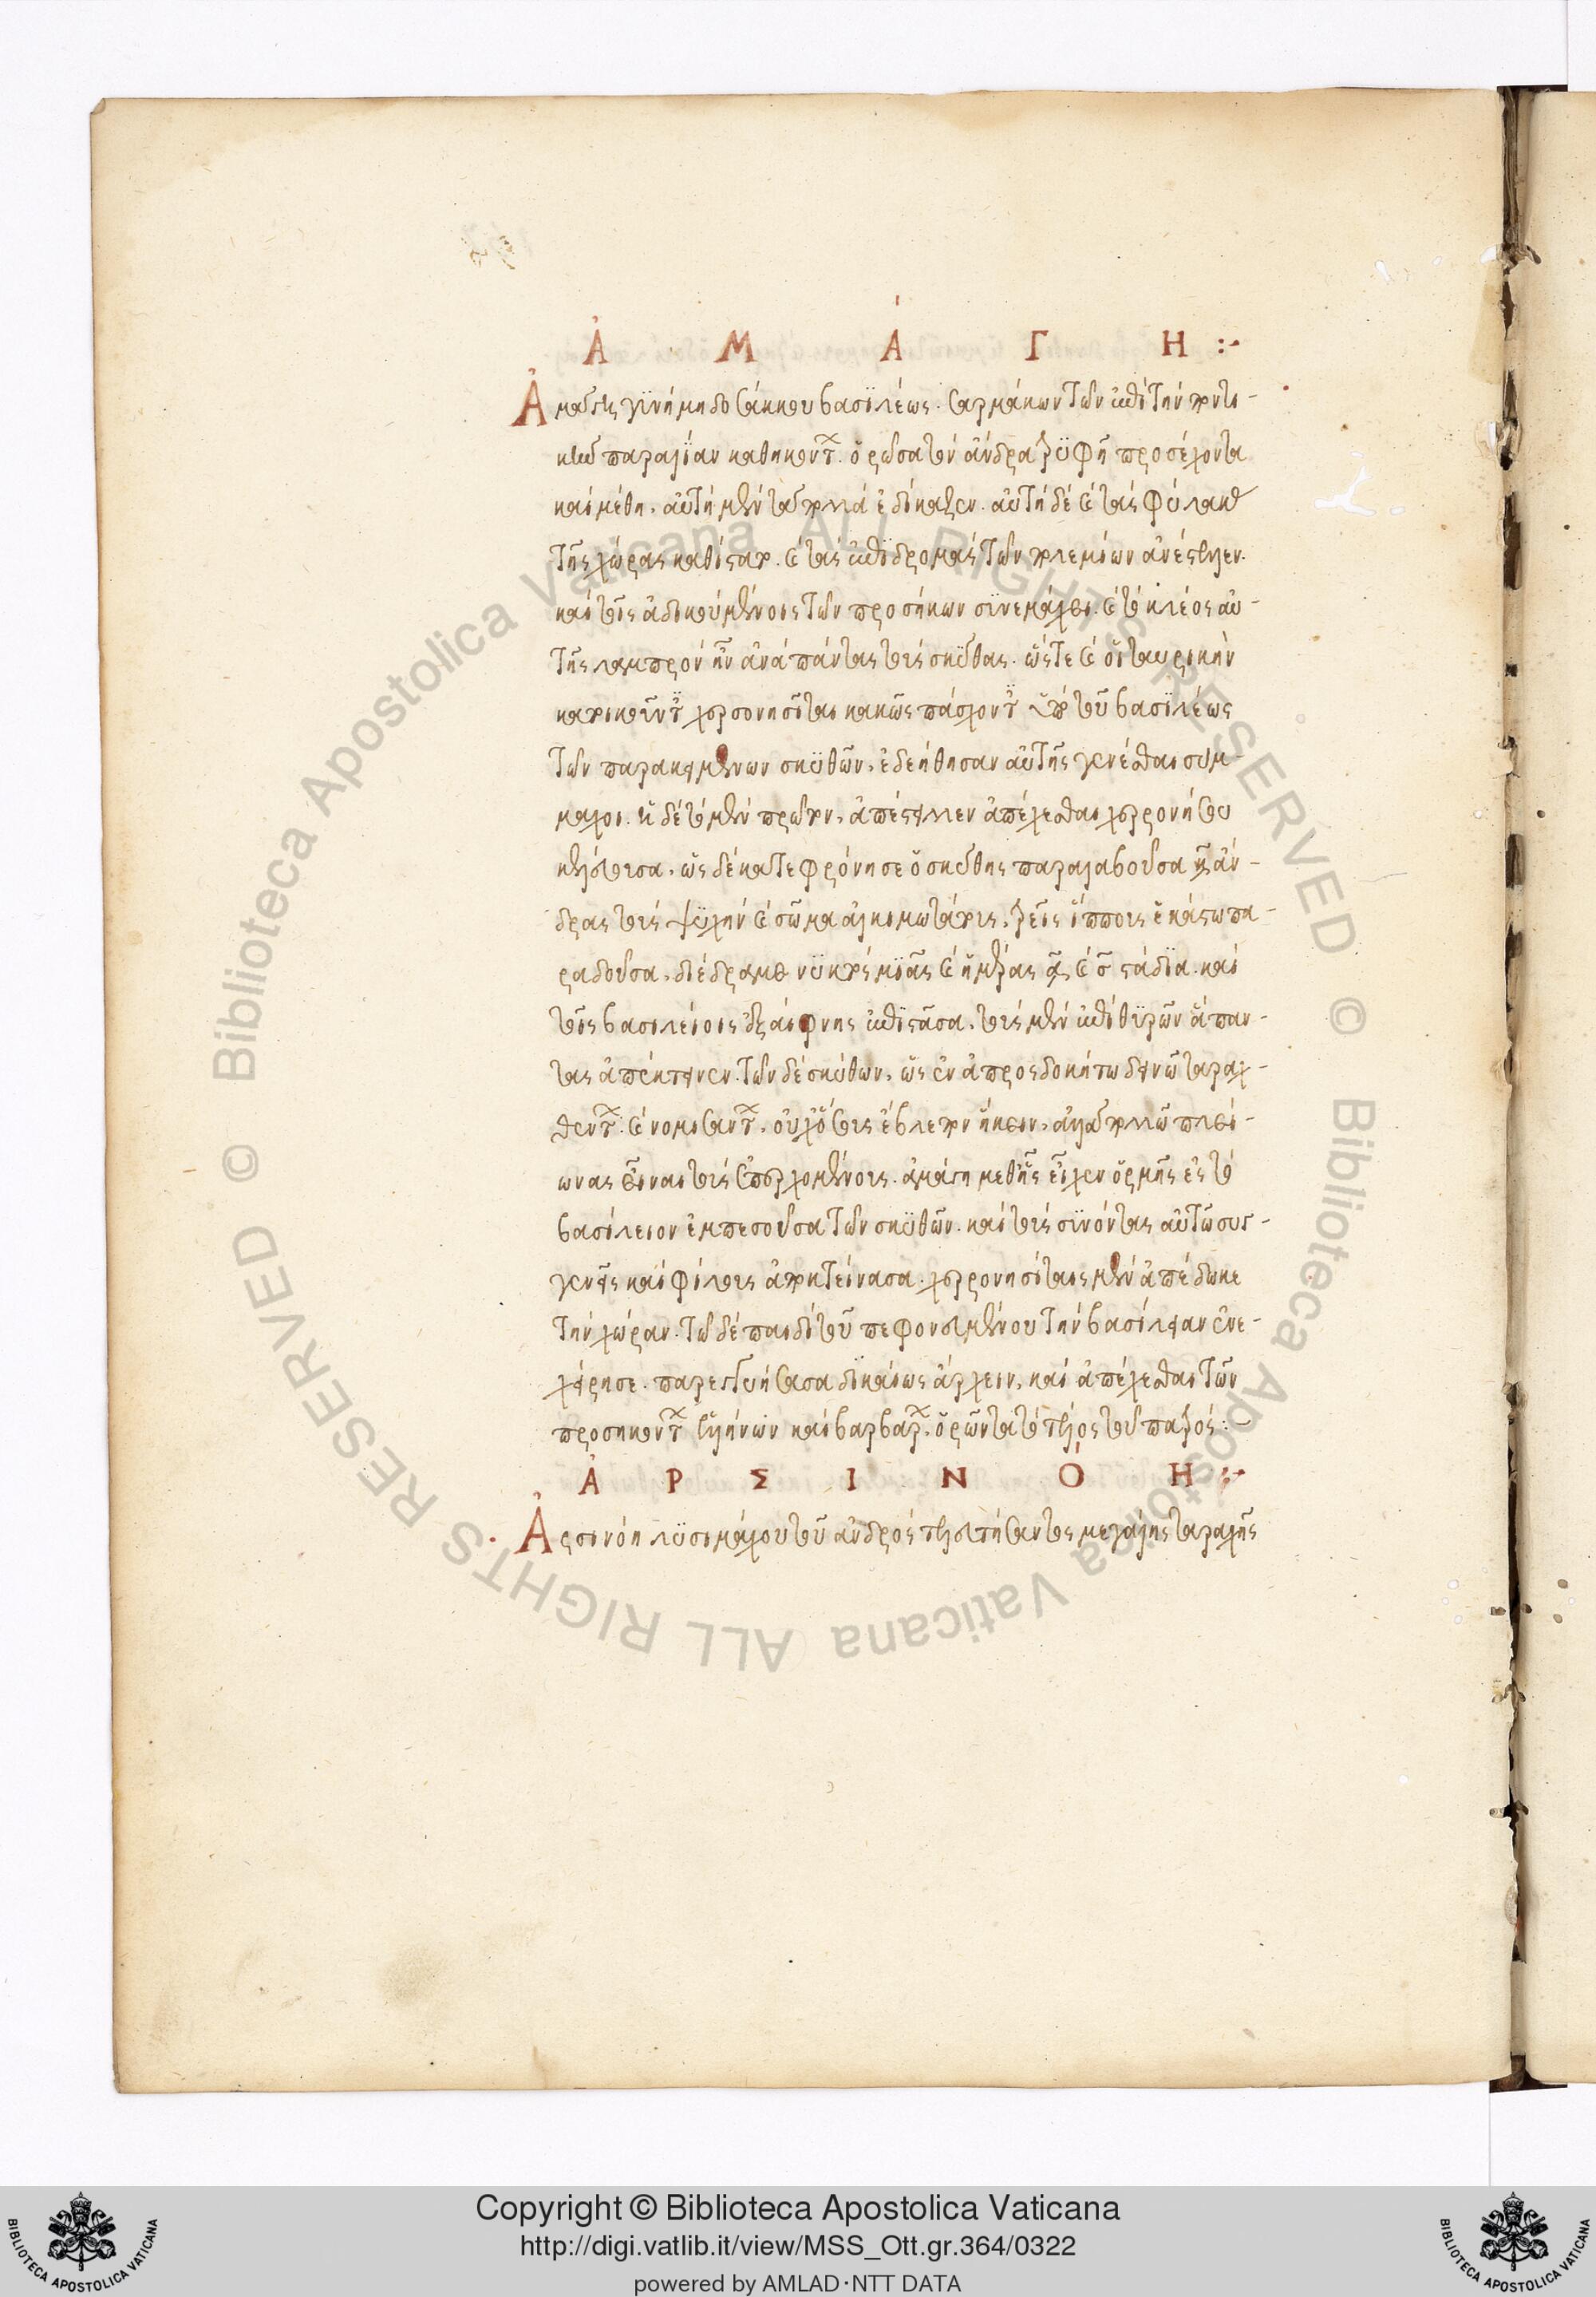 Ἀ Μ Ά Γ Η :~
Ἀμάγης γυνὴ μηδοσάκκου βασιλέως. σαρμάτων τῶν ἐπὶ τὴν ποντι-
κὴν παραλίαν καθηκόντων. ὁρῶσα τὸν ἄνδρα τρυφῇ προσέχοντα
καὶ μέθῃ, αὐτὴ μὲν τὰ πολλὰ ἐδίκαζεν. αὐτὴ δὲ καὶ τὰς φύλακας
τῆς χώρας καθίστατο. καὶ τὰς ἐπιδρομὰς τῶν πολεμίων ἀνέστελλεν.
καὶ τοῖς ἀδικουμένοις τῶν προσήκων συνεμάχει. καὶ τὸ κλέος αὐ-
τῆς λαμπρὸν ἦν ἀνὰ πάντας τοὺς σκύθας. ὥστε καὶ οἱ ταυρικὴν
κατοικοῦντες χερσονησῖται κακῶς πάσχοντες ὑπὸ τοῦ βασιλέως
τῶν παρακειμένων σκυθῶν, ἐδεήθησαν αὐτῆς γενέσθαι συμ-
μαχοι. ἡ δὲ τὸ μὲν πρῶτον, ἀπέστειλεν ἀπέχεσθαι χερρονήσου
κελεύουσα, ὡς δὲ κατεφρόνησε ὁ σκύθης παραλαβοῦσα ρκ ἄν-
δρας τοὺς ψυχὴν καὶ σῶμα ἀλκιμωτάτους, τρεῖς ἵππους ἑκάστω πα-
ραδοῦσα, διέδραμε νυκτὸς μιᾶς καὶ ἡμέρας ͵α καὶ σ στάδια. καὶ
τοῖς βασιλείοις ἐξαίφνης ἐπιστᾶσα, τοὺς μὲν ἐπὶ θυρῶν ἅπαν-
τας ἀπέκτεινεν. τῶν δὲ σκύθων, ὡς ἐν ἀπροσδοκήτω δεινῶ ταραχ-
θέντων. καὶ νομισάντων, οὐχ ὅσους ἔβλεπον ἥκειν, ἀλλὰ πολλῶ πλεί-
ωνας εἶναι τοὺς ἐπερχομένους. ἀμάγη μεθ᾽ ἧς εἶχεν ὁρμῆς ἐς τὸ
βασίλειον ἐμπεσοῦσα τῶν σκυθῶν. καὶ τοὺς συνόντας αὐτῶ συγ-
γενεῖς καὶ φίλους ἀποκτείνασα. χερρονησίταις μὲν ἀπέδωκε
τὴν χώραν. τῶ δὲ παιδὶ τοῦ πεφονευμένου τὴν βασίλειαν ἐνε-
χείρησε. παρεγγυήσασα δικαίως ἄρχειν, καὶ ἀπέχεσθαι τῶν
προσηκόντων ἑλλήνων καὶ βαρβάρων, ὁρῶντα τὸ τέλος τοῦ πατρός :~
Ἀ Ρ Σ Ι Ν Ό Η :~
Ἀρσινόη λυσιμάχου τοῦ ἀνδρὸς τελευτήσαντος μεγάλης ταραχῆς
Copyright © Biblioteca Apostolica Vaticana
http://digi.vatlib.it/view/MSS_Ott.gr.364/0322
powered by AMLAD·NTT DATA
BIBLIOTECA APOSTOLICA VATICANA
BIBLIOTECA APOSTOLICA VATICANA
© Biblioteca Apostolica Vaticana ALL RIGHTS RESERVED
© Biblioteca Apostolica Vaticana ALL RIGHTS RESERVED